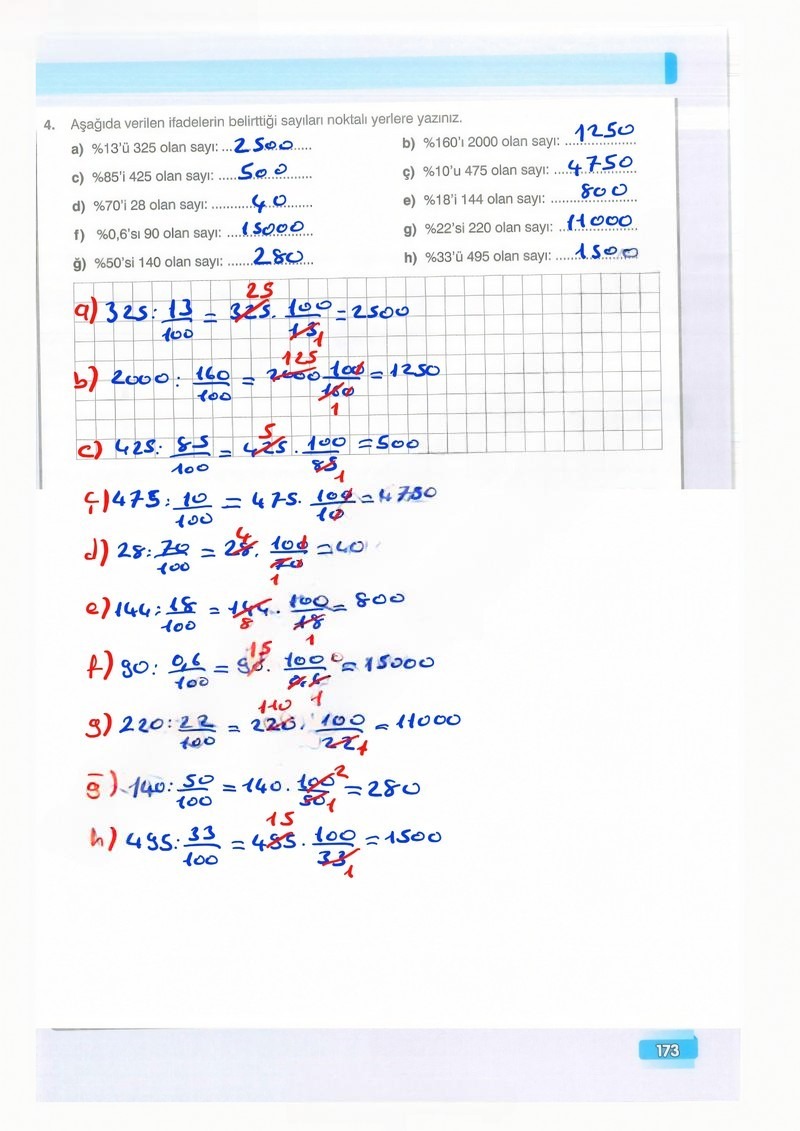 4. Aşağıda verilen ifadelerin belirttiği sayıları noktalı yerlere yazınız.
a) %13'ü 325 olan sayı: ...2500..... b) %160'ı 2000 olan sayı: 1250
c) %85'i 425 olan sayı: .....500..... ç) %10'u 475 olan sayı: ...4750
d) %70'i 28 olan sayı: ..........40..... e) %18'i 144 olan sayı: 800
f) %0,6'sı 90 olan sayı: ...15000... g) %22'si 220 olan sayı: ..11000
ğ) %50'si 140 olan sayı: .......280... h) %33'ü 495 olan sayı: ......1500
a) 325 : 13/100 = 325 25 . 100/13 1 = 2500
b) 2000 : 160/100 = 2000 125 100/160 1 = 1250
c) 425 : 85/100 = 425 5 . 100/85 1 = 500
ç) 475 : 10/100 = 475 . 100/10 = 4750
d) 28 : 70/100 = 28 4 . 100/70 1 = 40
e) 144 : 18/100 = 144 8 . 100/18 1 = 800
f) 90 : 0,6/100 = 90 15 . 100 0/0,6 1 = 15000
g) 220 : 22/100 = 220 110 . 100/22 1 = 11000
ğ) 140 : 50/100 = 140 . 100 2/50 1 = 280
h) 495 : 33/100 = 495 15 . 100/33 1 = 1500
173